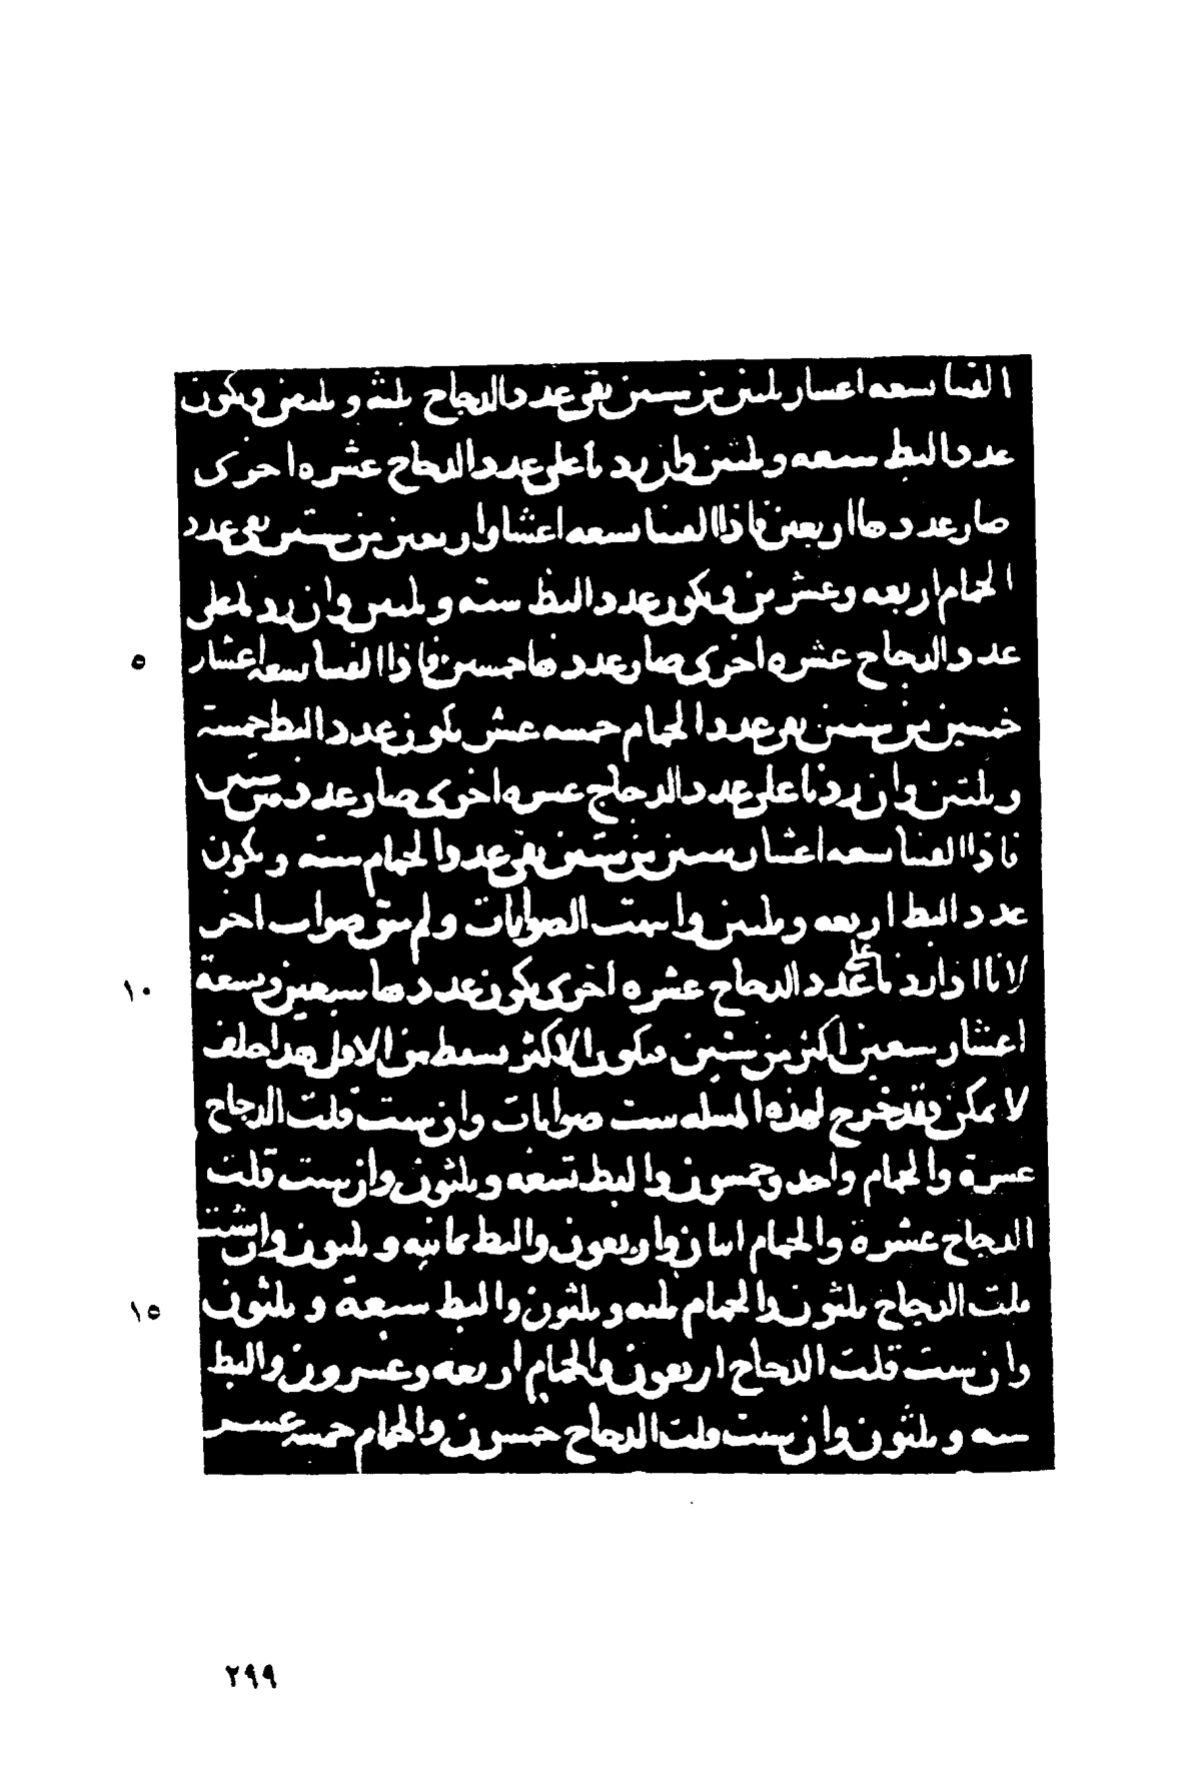 القينا تسعه اعشار ثلثين من ستين بقى عدد الدجاج ثلثه وثلثين ويكون
عدد البط سبعه وثلثين وان زدنا على عدد الدجاج عشره اخرى
صار عددها اربعين فاذا القينا تسعه اعشار اربعين من ستين بقى عدد
الحمام اربعه وعشرين ويكون عدد البط سته وثلثين وان زدنا على
٥ عدد الدجاج عشره اخرى صار عددها خمسين فاذا القينا تسعه اعشار
خمسين من ستين بقى عدد الحمام خمسه عشر يكون عدد البط خمسة
وثلثين وان زدنا على عدد الدجاج عشره اخرى صار عدد ستين
فاذا القينا تسعه اعشار ستين من ستين بقى عدد الحمام سته ويكون
عدد البط اربعه وثلثين وانتهت الصوابات ولم يبق صواب اخر
١٠ لانا اذا زدنا على عدد الدجاج عشره اخرى يكون عددها سبعين وتسعة
اعشار سبعين اكثر من ستين فيكون الاكثر يسقط من الاقل هذا خلف
لا يمكن وقد خرج لهذه المسله ست صوابات وان شيت قلت الدجاج
عشرة والحمام واحد وخمسون والبط تسعه وثلثون وان شيت قلت
الدجاج عشرة والحمام اثنان واربعون والبط ثمانيه وثلثون وان شئت
١٥ قلت الدجاج ثلثون والحمام ثلثه وثلثون والبط سبعة وثلثون
وان شيت قلت الدجاج اربعون والحمام اربعه وعشرون والبط
سته وثلثون وان شيت قلت الدجاج خمسون والحمام خمسه عشر
٢٩٩